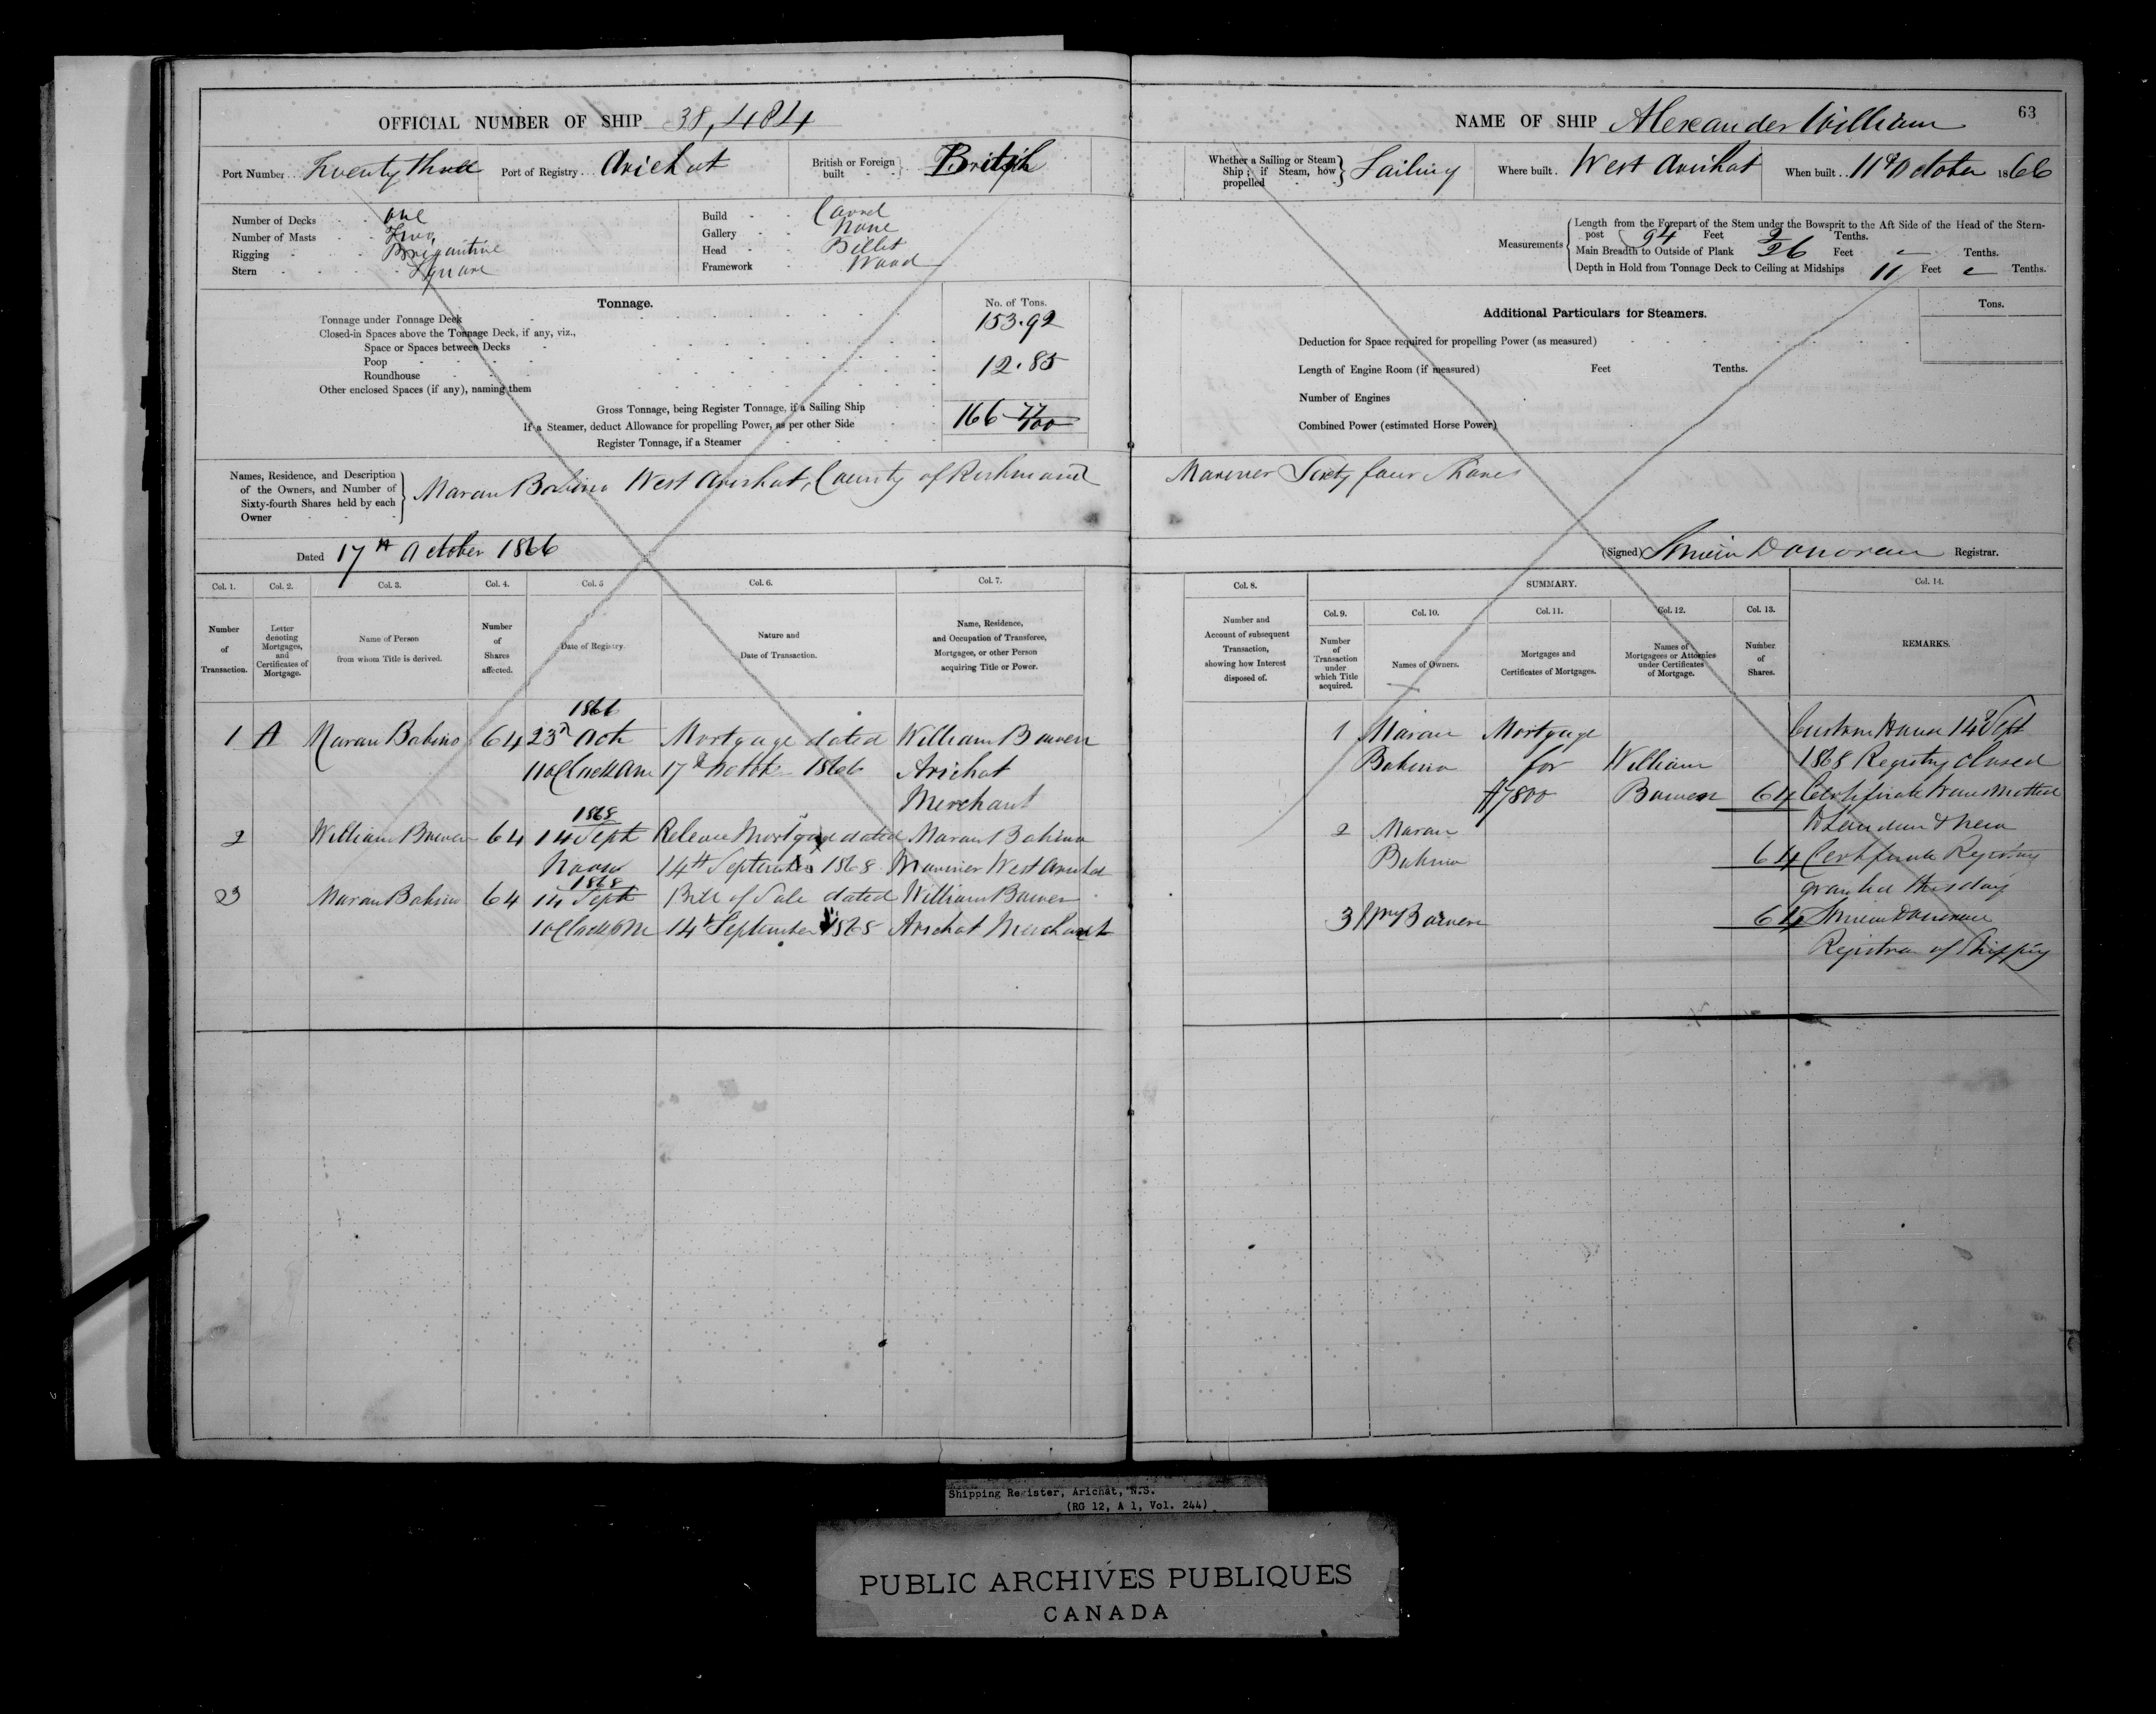 OFFICIAL NUMBER OF SHIP 38,484
Port Number Twenty three Port of Registry Arichat British or Foreign built British
Number of Decks one
Number of Masts Two
Rigging Brigantine
Stern Square
Build Carvel
Gallery None
Head Billet
Framework Wood
Tonnage. No. of Tons.
Tonnage under Tonnage Deck 153.92
Closed-in Spaces above the Tonnage Deck, if any, viz.,
Space or Spaces between Decks
Poop 12.85
Roundhouse
Other enclosed Spaces (if any), naming them
Gross Tonnage, being Register Tonnage, if a Sailing Ship 166 77/100
If a Steamer, deduct Allowance for propelling Power, as per other Side
Register Tonnage, if a Steamer
Names, Residence, and Description of the Owners, and Number of Sixty-fourth Shares held by each Owner
Maran Bohino West Arichat, County of Richmond
Dated 17th October 1866
Col. 1. Col. 2. Col. 3. Col. 4. Col. 5 Col. 6. Col. 7.
Number of Transaction.
Letter denoting Mortgages, and Certificates of Mortgage.
Name of Person from whom Title is derived.
Number of Shares affected.
Date of Registry.
Nature and Date of Transaction.
Name, Residence, and Occupation of Transferee, Mortgagee, or other Person acquiring Title or Power.
1866
1 A Maran Bohino 64 23d Oct Mortgage dated William Bowen
11 oClock am 17th Octob 1866 Arichat
Merchant
1868
2 William Bowen 64 14 Sept Release Mortgage dated Maran Bohino
Noon 14th September 1868 Mariner West Arichat
1868
3 Maran Bohino 64 14 Sept Bill of Sale dated William Bowen
1 oClock PM 14th September 1868 Arichat Merchant
NAME OF SHIP Alexander William 63
Whether a Sailing or Steam Ship; if Steam, how propelled Sailing Where built West Arichat When built 11th October 1866
Measurements
Length from the Forepart of the Stem under the Bowsprit to the Aft Side of the Head of the Stern-
post 94 Feet 2 Tenths.
Main Breadth to Outside of Plank 26 Feet - Tenths.
Depth in Hold from Tonnage Deck to Ceiling at Midships 11 Feet - Tenths.
Additional Particulars for Steamers. Tons.
Deduction for Space required for propelling Power (as measured)
Length of Engine Room (if measured) Feet Tenths.
Number of Engines
Combined Power (estimated Horse Power)
Mariner Sixty four Shares
(Signed) Donovan Registrar.
Col. 8. SUMMARY. Col. 14.
Col. 9. Col. 10. Col. 11. Col. 12. Col. 13.
Number and Account of subsequent Transaction, showing how Interest disposed of.
Number of Transaction under which Title acquired.
Names of Owners.
Mortgages and Certificates of Mortgages.
Names of Mortgagees or Attornies under Certificates of Mortgage.
Number of Shares.
REMARKS.
1 Maran Mortgage Custom House 14th Sept
Bohino for William 1868 Registry closed
$7800 Bowen 64 Certificate transmitted
2 Maran to London & new
Bohino 64 Certificate Registry
granted this day
3 Wm Bowen 64 Donovan
Registrar of Shipping
Shipping Register, Arichat, N.S.
(RG 12, A 1, Vol. 244)
PUBLIC ARCHIVES PUBLIQUES
CANADA